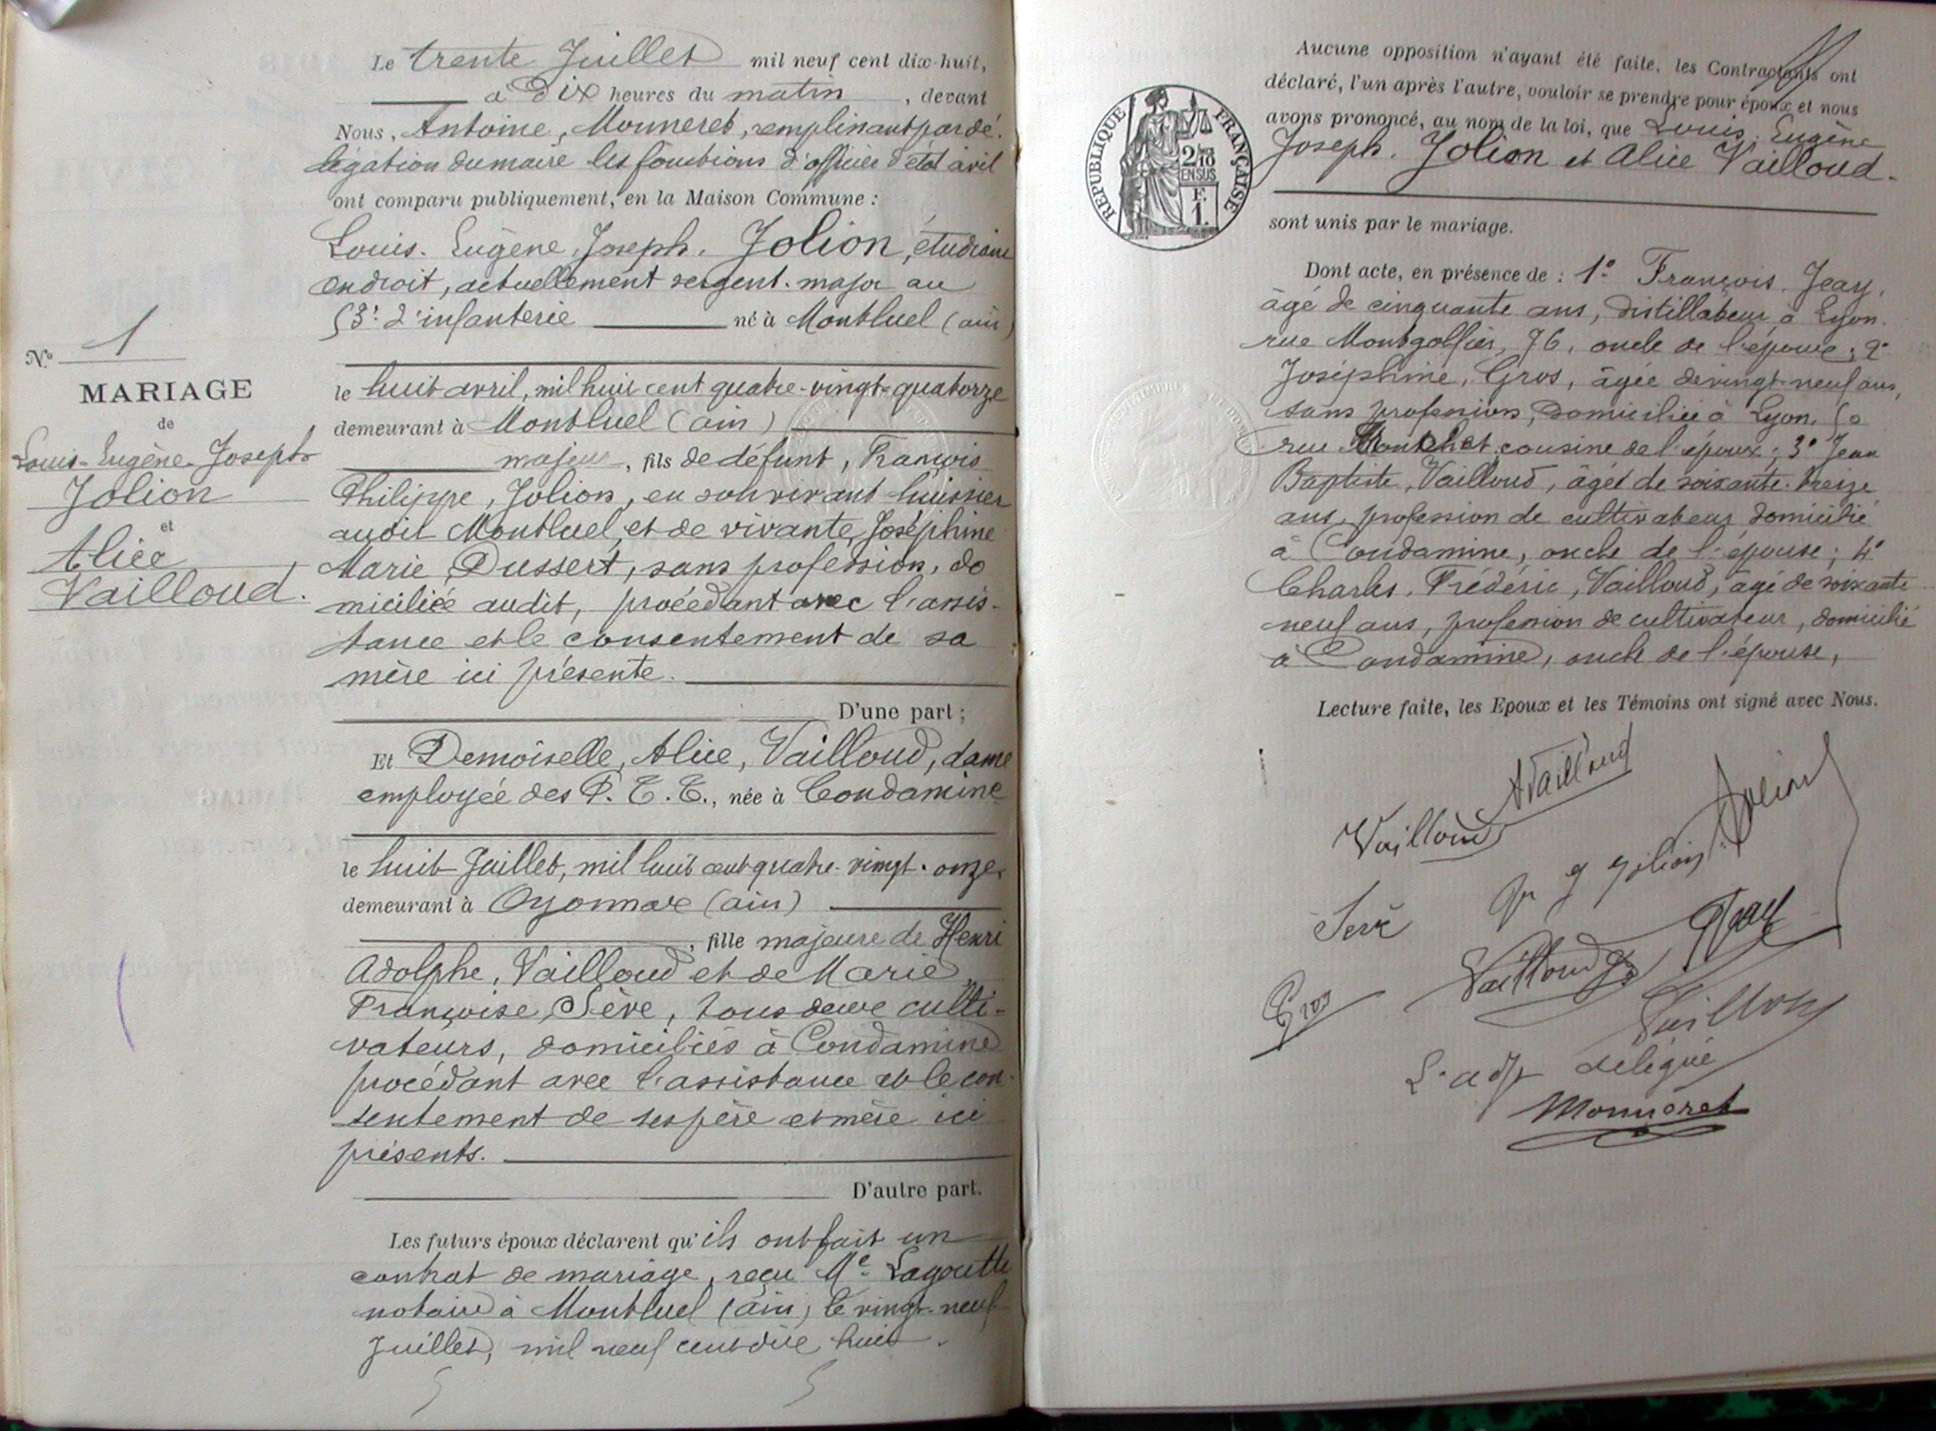 Le trente Juillet mil neuf cent dix-huit,
à Dix heures du matin, devant
Nous, Antoine, Monneret, remplissant par dé-
légation du maire les fonctions d'officier d'état civil
ont comparu publiquement, en la Maison Commune :
Louis. Eugène, Joseph. Jolion, étudiant
en droit, actuellement sergent. major au
53e d'infanterie né à Montluel (ain)
No 1
MARIAGE
de
Louis-Eugène-Joseph
Jolion
et
Alice
Vailloud.
le huit avril, mil huit cent quatre-vingt-quatorze
demeurant à Montluel (ain)
majeur, fils de défunt, François
Philippe, Jolion, en son vivant huissier
audit Montluel, et de vivante, Joséphine
Marie Dussert, sans profession, do
miciliée audit, procédant avec l'assis-
tance et le consentement de sa
mère ici présente.
D'une part ;
Et Demoiselle, Alice, Vailloud, dame
employée des P. T. T., née à Condamine
le huit Juillet, mil huit cent quatre-vingt-onze
demeurant à Oyonnax (ain)
, fille majeure de Henri
Adolphe, Vailloud et de Marie
Françoise, Sève, tous deux culti-
vateurs, domiciliés à Condamine
procédant avec l'assistance et le con-
sentement de ses père et mère ici
présents.
D'autre part.
Les futurs époux déclarent qu'ils ont fait un
contrat de mariage, reçu Me Lagoutte
notaire à Montluel (ain) le vingt-neuf
Juillet, mil neuf cent dix huit.
Aucune opposition n'ayant été faite, les Contractants ont
déclaré, l'un après l'autre, vouloir se prendre pour époux et nous
avons prononcé, au nom de la loi, que Louis, Eugène
Joseph. Jolion et Alice Vailloud.
REPUBLIQUE FRANÇAISE
2/10
EN SUS
F.
1.
sont unis par le mariage.
Dont acte, en présence de : 1° François. Jeay,
âgé de cinquante ans, distillateur à Lyon.
rue Montgolfier, 76, oncle de l'époux ; 2°
Joséphine, Gros, âgée de vingt-neuf ans,
sans profession, domiciliée à Lyon, 50
rue cousine de l'époux ; 3° Jean
Baptiste, Vailloud, âgé de soixante-treize
ans, profession de cultivateur domicilié
à Condamine, oncle de l'épouse ; 4°
Charles. Frédéric, Vailloud, âgé de soixante
neuf ans, profession de cultivateur, domicilié
à Condamine, oncle de l'épouse,
Lecture faite, les Epoux et les Témoins ont signé avec Nous.
A Vailloud
Vailloud
Jolion
Jolion
Sève
Jeay
Vailloud
Gros
L'adjt délégué
Monneret